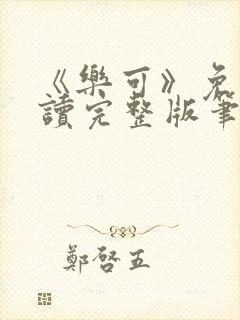 《樂可》免
讀完整版筆
鄭啓五